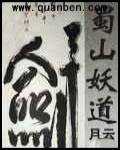 www.quanben.com
蜀山妖道
月云
劍